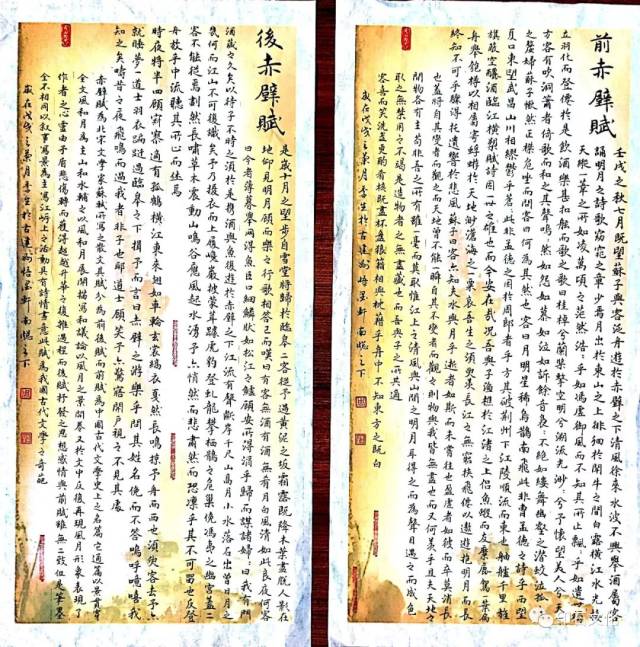 前赤壁賦
壬戌之秋七月既望蘇子與客泛舟遊於赤壁之下清風徐來水波不興舉酒屬客
誦明月之詩歌窈窕之章少焉月出於東山之上徘徊於鬥牛之間白露橫江水光接
天縱一葦之所如凌萬頃之茫然浩々乎如馮虛御風而不知其所止飄々乎如遺世獨
立羽化而登僊於是飲酒樂甚扣舷而歌之歌曰桂棹兮蘭槳擊空明兮溯流光渺々兮予懷望美人兮天一
方客有吹洞簫者倚歌而和之其聲嗚々然如怨如慕如泣如訴餘音裊々不絕如縷舞幽壑之潛蛟泣孤舟
之嫠婦蘇子愀然正襟危坐而問客曰何為其然也客曰月明星稀烏鵲南飛此非曹孟德之詩乎西望
夏口東望武昌山川相繆鬱乎蒼々此非孟德之困於周郎者乎方其破荊州下江陵順流而東也舳艫千里旌
旗蔽空釃酒臨江橫槊賦詩固一世之雄也而今安在哉況吾與子漁樵於江渚之上侶魚蝦而友麋鹿駕一葉之扁
舟舉匏樽以相屬寄蜉蝣於天地渺滄海之一粟哀吾生之須臾羨長江之無窮挾飛僊以遨遊抱明月而長
終知不可乎驟得托遺響於悲風蘇子曰客亦知夫水與月乎逝者如斯而未嘗往也盈虛者如彼而卒莫消長
也蓋將自其變者而觀之而天地曾不能以一瞬自其不變者而觀之則物與我皆無盡也而又何羨乎且夫天地之
間物各有主苟非吾之所有雖一毫而莫取惟江上之清風與山間之明月耳得之而為聲目遇之而成色
取之無禁用之不竭是造物者之無盡藏也而吾與子之所共適
客喜而笑洗盞更酌肴核既盡杯盤狼藉相與枕藉乎舟中不知東方之既白
歲在戊戌之菊月李生於古建州悟墨軒南腕之下
後赤壁賦
是歲十月之望步自雪堂將歸於臨皋二客從予過黃泥之坂霜露既降木葉盡脫人影在
地仰見明月顧而樂之行歌相答已而嘆曰有客無酒有酒無肴月白風清如此良夜何客
曰今者薄暮舉網得魚巨口細鱗狀如松江之鱸顧安所得酒乎歸而謀諸婦婦曰我有鬥
酒藏之久矣以待子不時之須於是攜酒與魚復遊於赤壁之下江流有聲斷岸千尺山高月小水落石出曾日月之
幾何而江山不可復識矣予乃攝衣而上履巉巖披蒙茸踞虎豹登虬龍攀栖鶻之危巢俯馮夷之幽宮蓋二
客不能從焉劃然長嘯草木震動山鳴谷應風起水湧予亦悄然而悲肅然而恐凜乎其不可留也反登
舟放乎中流聽其所止而休焉
時夜將半四顧寂寥適有孤鶴橫江東來翅如車輪玄裳縞衣戛然長鳴掠予舟而西也須臾客去予亦
就睡夢一道士羽衣蹁躚過臨皋之下揖予而言曰赤壁之遊樂乎問其姓名俛而不答嗚呼噫嘻我
知之矣疇昔之夜飛鳴而過我者非子也耶道士顧笑予亦驚寤開戶視之不見其處
赤壁賦為北宋大文學家蘇軾所著之散文其賦分為前後賦而前賦為中國古代文學史上之名篇它通篇以景貫穿
全文風和月為主山和水輔之以風和月展開描寫和議論以風月之景開卷又於文中反復再現風月形象表現了
作者之心靈由矛盾悲傷轉而獲得超越升華之複雜過程而後賦抒發之思想感情與前賦雖無二致但其筆墨
全不相同以敘事寫景為主寫江岸上之活動具有詩情畫意此賦為我國古代文學之奇葩
歲在戊戌之菊月李生於古建州悟墨軒南腕之下